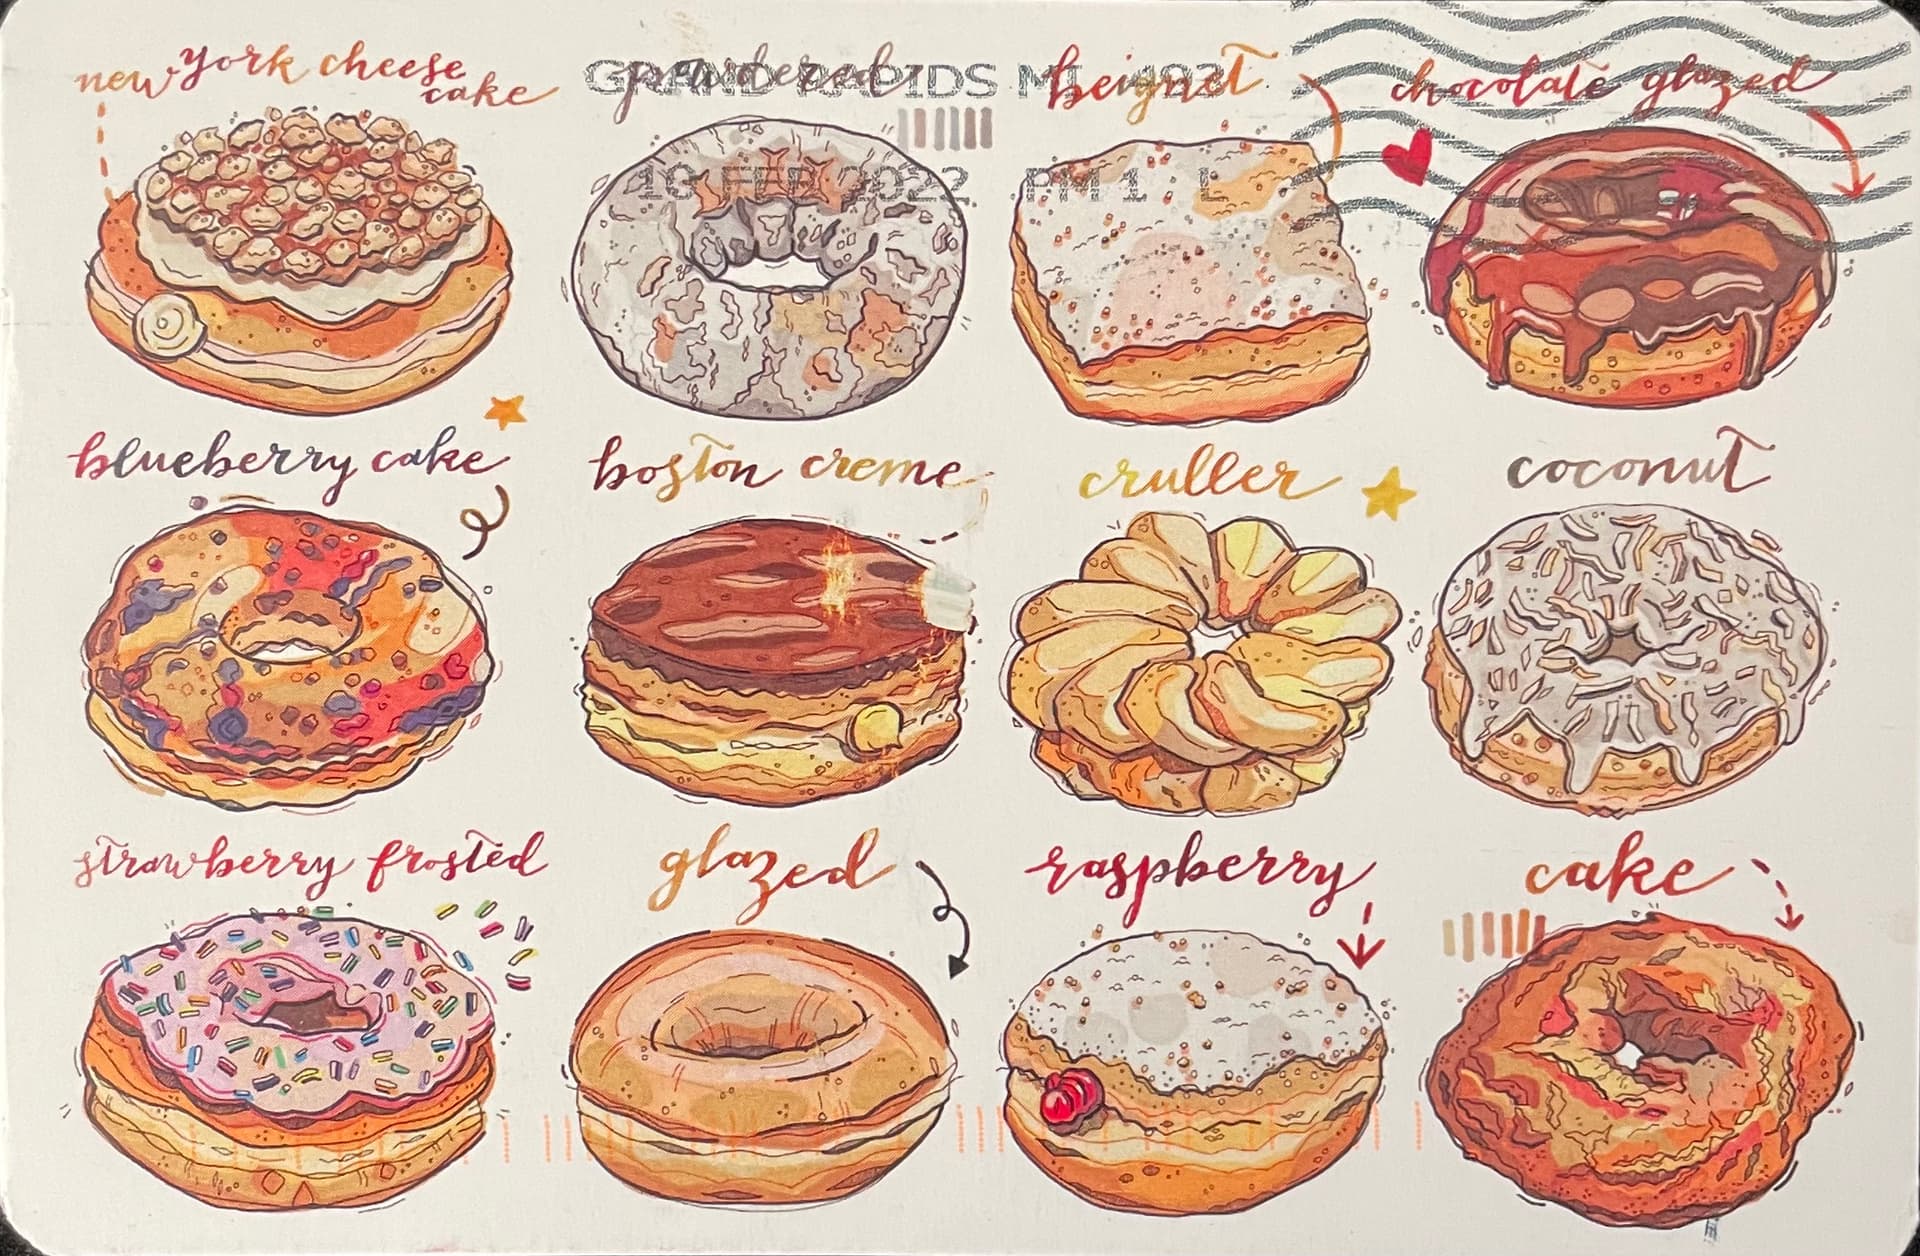 new york cheese
cake
powdered
GRAND RAPIDS MI 493
beignet
chocolate glazed
10 FEB 2022 PM 1 L
blueberry cake
boston creme
cruller
coconut
strawberry frosted
glazed
raspberry
cake